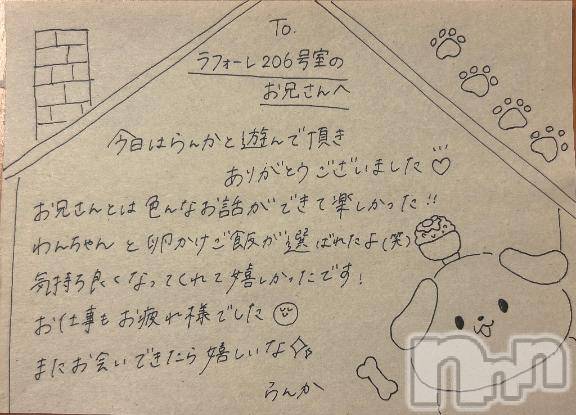 To.
ラフォーレ206号室の
お兄さんへ
今日はらんかと遊んで頂き
ありがとうございました♡
お兄さんとは色んなお話ができて楽しかった!!
わんちゃんと卵かけご飯が選ばれたよ(笑)
気持ち良くなってくれて嬉しかったです!
お仕事もお疲れ様でした
またお会いできたら嬉しいな
らんか
nnn